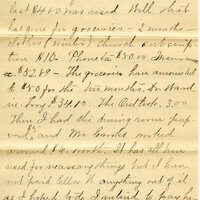 last $400 was used. Well that
has gone for groceries - 2 months -
clothes (winter) church subscrip-
tion $10 - Phone $30.00 Insurance
$52.89 - The groceries have amounted
to $50 for the two months. Dr. Hand
in Troy $34.10. The Outlook 3.00
Then I had the dining room pap-
ered, and Mr. Cooks worked
around to month. It has all been
used for necessary things but I have
not paid Ella anything out of it
as I hoped to do. I intend to pay her